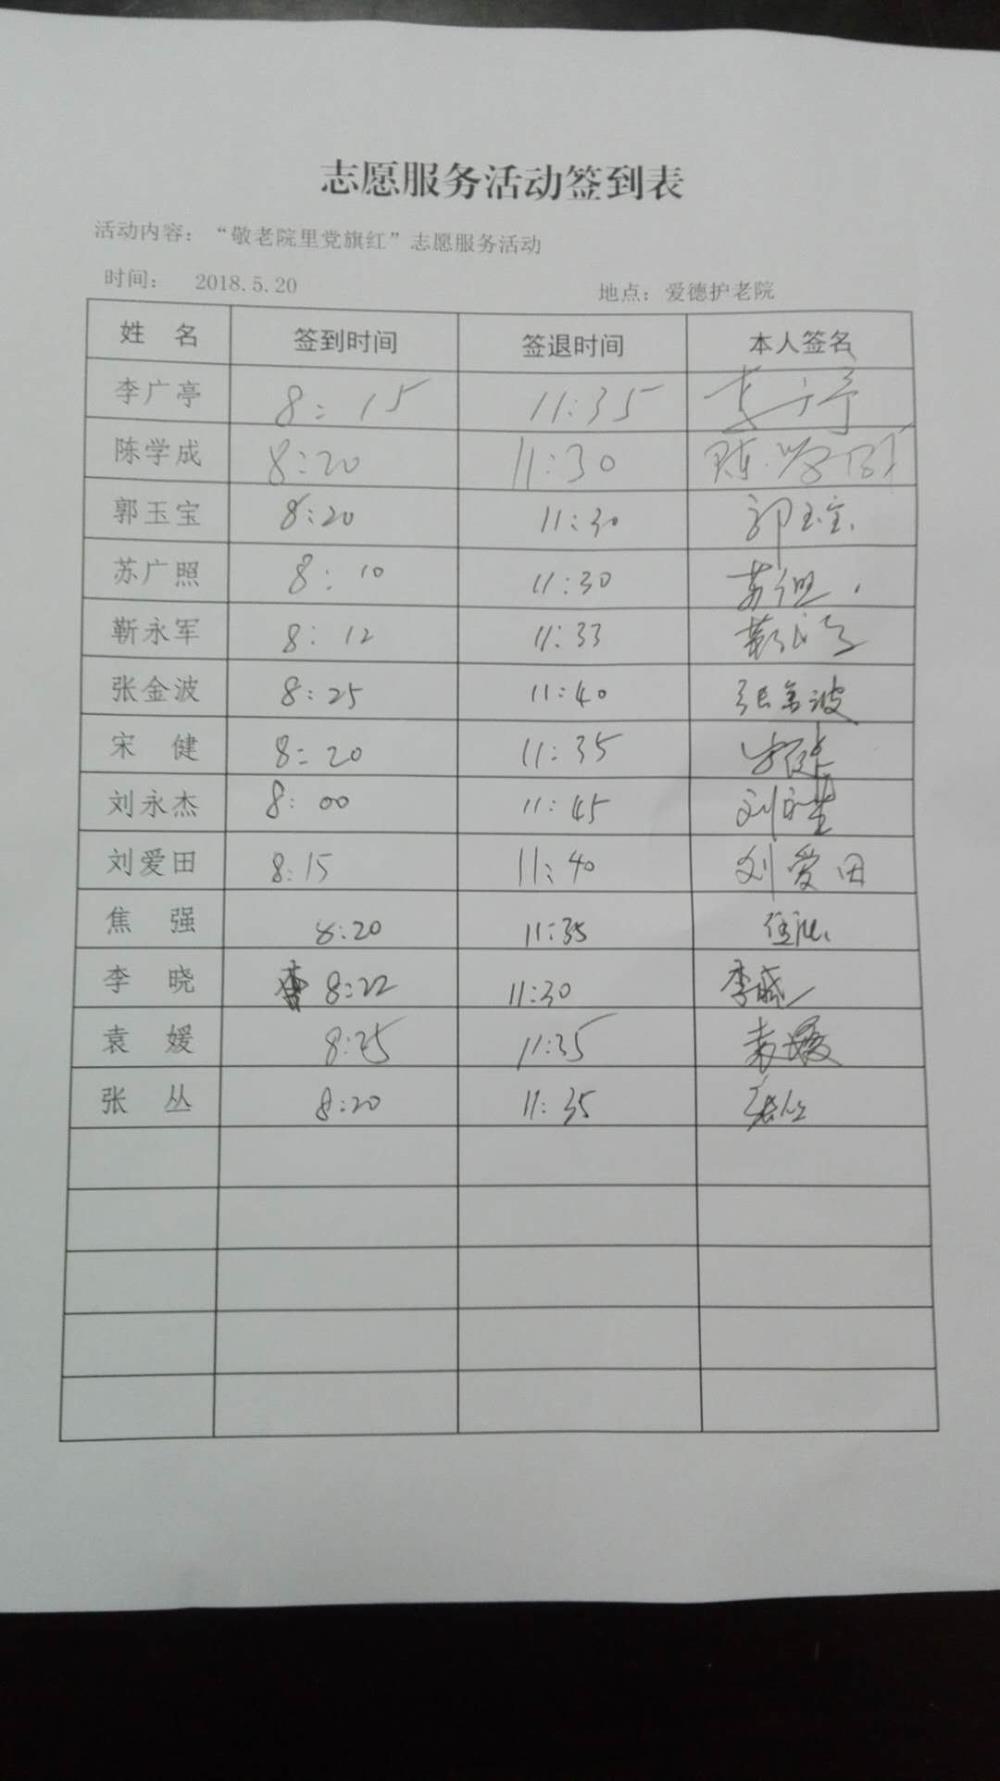 志愿服务活动签到表
活动内容：“敬老院里党旗红”志愿服务活动
时间： 2018.5.20 地点：爱德护老院
姓 名 签到时间 签退时间 本人签名
李广亭 8:15 11:35
陈学成 8:20 11:30 陈学成
郭玉宝 8:20 11:30 郭玉宝
苏广照 8:10 11:30
靳永军 8:12 11:33
张金波 8:25 11:40 张金波
宋 健 8:20 11:35 宋健
刘永杰 8:00 11:45 刘永杰
刘爱田 8:15 11:40 刘爱田
焦 强 8:20 11:35
李 晓 8:22 11:30 李晓
袁 媛 8:25 11:35 袁媛
张 丛 8:20 11:35 张丛